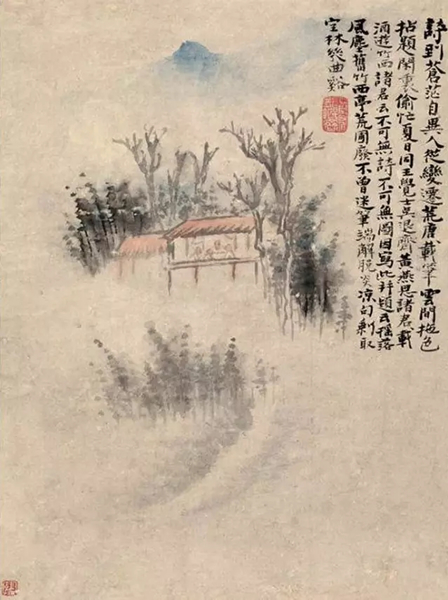 詩到蒼茫自異人從變遷荒唐載筆雲間拖色
拈題閑裏偷忙夏日同王覺士吳退齋黃燕思諸君載
酒遊竹西諸君云不可無詩不可無圖因寫此并題云搖落
風塵舊竹西亭荒園廢不曾迷筆端解脫炎凉句剩取
空林幾曲谿